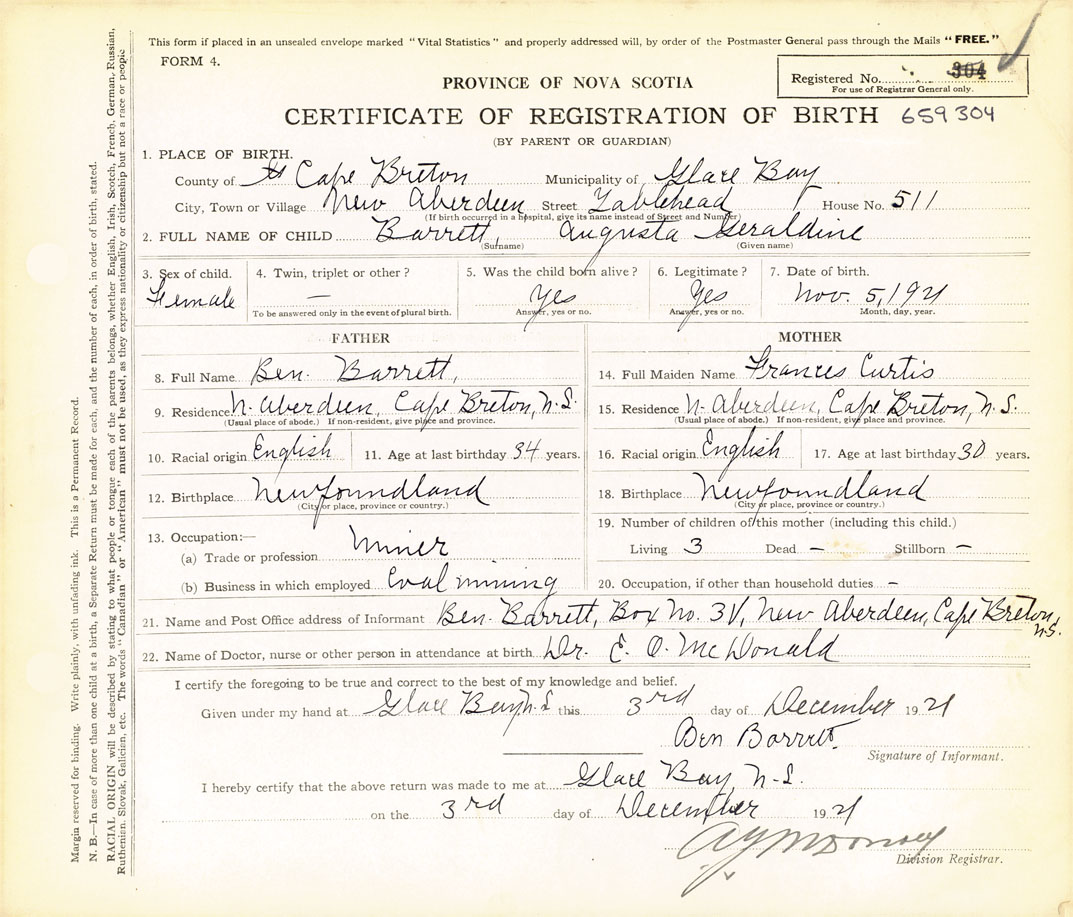 This form if placed in an unsealed envelope marked "Vital Statistics" and properly addressed will, by order of the Postmaster General pass through the Mails "FREE."
FORM 4.
PROVINCE OF NOVA SCOTIA
Registered No. 304
For use of Registrar General only.
CERTIFICATE OF REGISTRATION OF BIRTH 659304
(BY PARENT OR GUARDIAN)
1. PLACE OF BIRTH.
County of Cape Breton Municipality of Glace Bay
City, Town or Village New Aberdeen Street Tablehead House No. 511
(If birth occurred in a hospital, give its name instead of Street and Number)
2. FULL NAME OF CHILD Barrett, Augusta Geraldine
(Surname) (Given name)
3. Sex of child. 4. Twin, triplet or other? 5. Was the child born alive? 6. Legitimate? 7. Date of birth.
Female — Yes Yes Nov. 5, 1921
To be answered only in the event of plural birth. Answer, yes or no. Answer, yes or no. Month, day, year.
FATHER
8. Full Name Ben. Barrett,
9. Residence N. Aberdeen, Cape Breton, N.S.
(Usual place of abode.) If non-resident, give place and province.
10. Racial origin English 11. Age at last birthday 34 years.
12. Birthplace Newfoundland
(City or place, province or country.)
13. Occupation:—
(a) Trade or profession Miner
(b) Business in which employed Coal mining
MOTHER
14. Full Maiden Name Frances Curtis
15. Residence N. Aberdeen, Cape Breton, N.S.
(Usual place of abode.) If non-resident, give place and province.
16. Racial origin English 17. Age at last birthday 30 years.
18. Birthplace Newfoundland
(City or place, province or country.)
19. Number of children of this mother (including this child.)
Living 3 Dead — Stillborn —
20. Occupation, if other than household duties —
21. Name and Post Office address of Informant Ben. Barrett, Box No. New Aberdeen, Cape Breton, N.S.
22. Name of Doctor, nurse or other person in attendance at birth Dr. E. O. McDonald
I certify the foregoing to be true and correct to the best of my knowledge and belief.
Given under my hand at Glace Bay N.S this 3rd day of December 1921
Ben Barrett.
Signature of Informant.
I hereby certify that the above return was made to me at Glace Bay, N.S.
on the 3rd day of December 1921
Division Registrar.
Margin reserved for binding. Write plainly, with unfading ink. This is a Permanent Record.
N. B.—In case of more than one child at a birth, a Separate Return must be made for each, and the number of each, in order of birth, stated.
RACIAL ORIGIN will be described by stating to what people or tongue each of the parents belongs, whether English, Irish, Scotch, French, German, Russian,
Ruthenian, Slovak, Galician, etc. The words "Canadian" or "American" must not be used, as they express nationality or citizenship but not a race or people